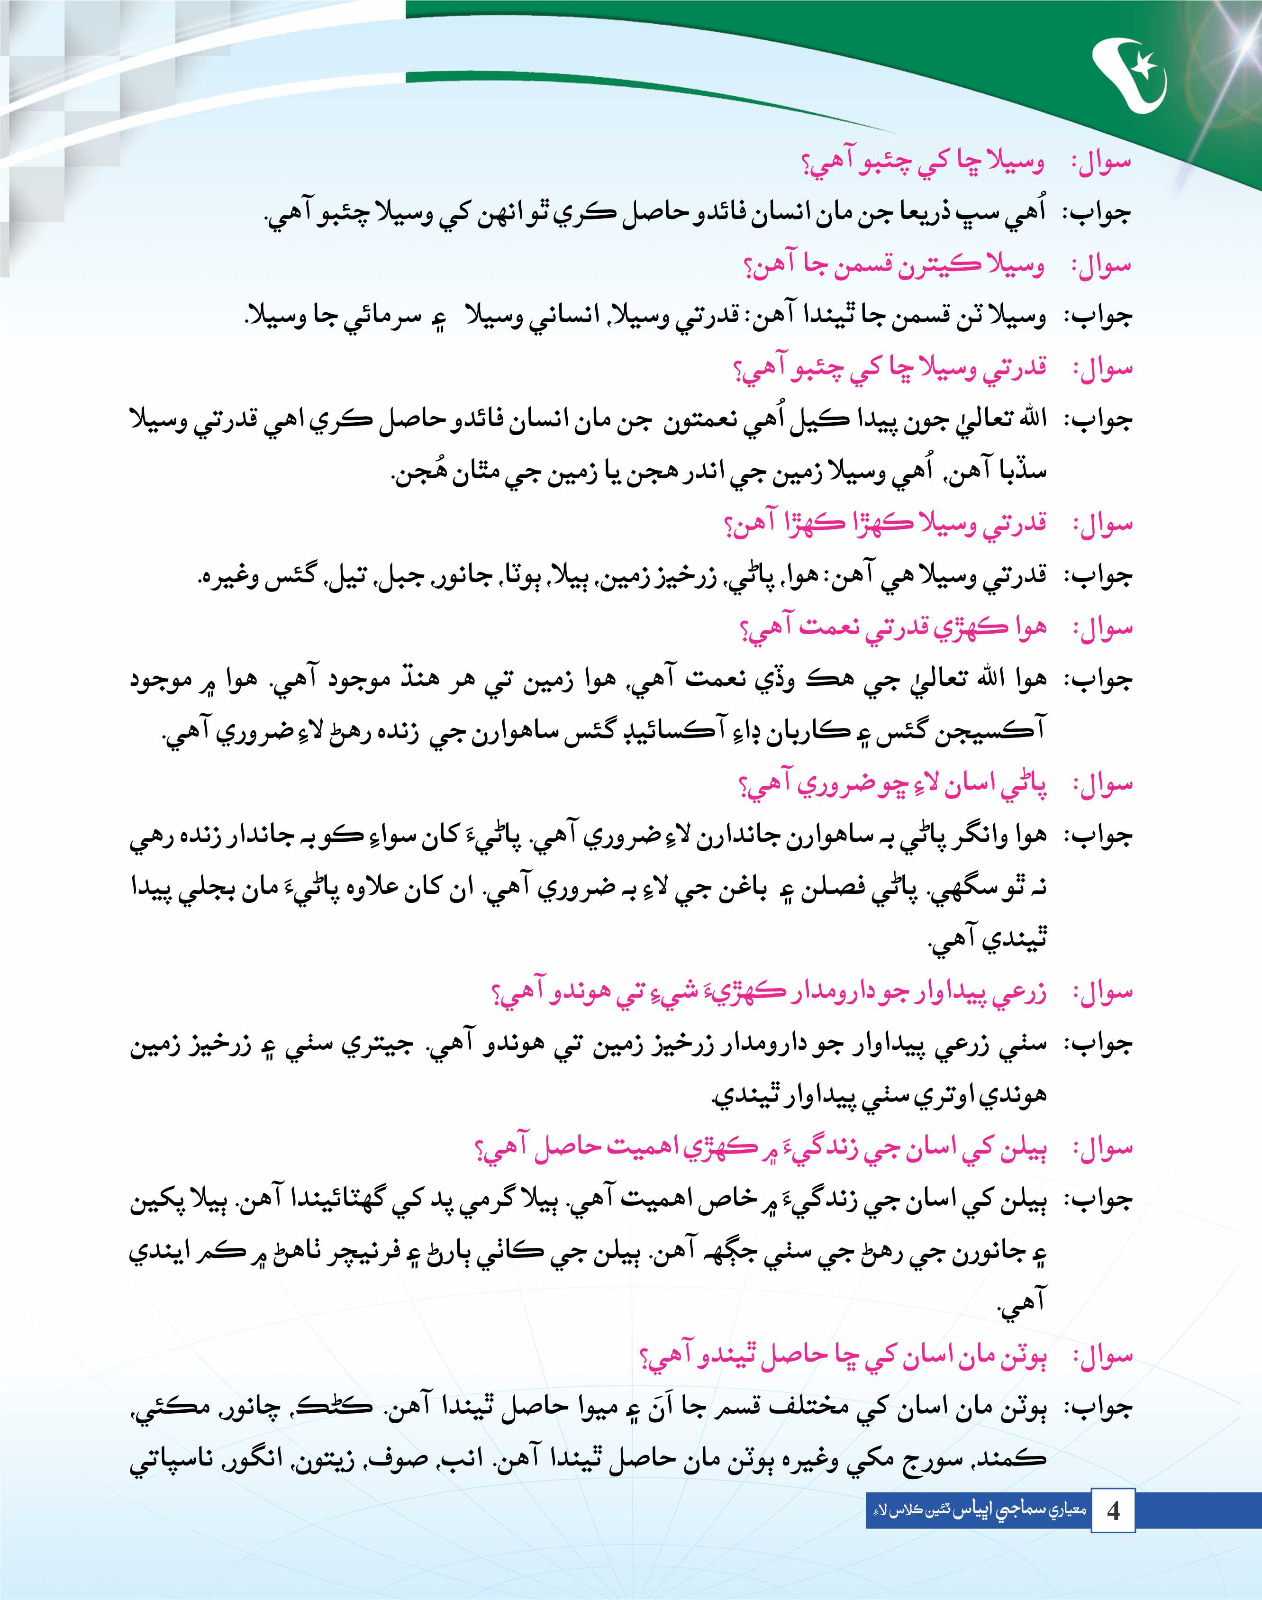 سوال: وسيلا ڇا کي چئبو آهي؟
جواب: اُهي سڀ ذريعا جن مان انسان فائدو حاصل ڪري ٿو انهن کي وسيلا چئبو آهي.
سوال: وسيلا ڪيترن قسمن جا آهن؟
جواب: وسيلا ٽن قسمن جا ٿيندا آهن: قدرتي وسيلا، انساني وسيلا ۽ سرمائي جا وسيلا.
سوال: قدرتي وسيلا ڇا کي چئبو آهي؟
جواب: الله تعاليٰ جون پيدا ڪيل اُهي نعمتون جن مان انسان فائدو حاصل ڪري اهي قدرتي وسيلا
سڏبا آهن، اُهي وسيلا زمين جي اندر هجن يا زمين جي مٿان هُجن.
سوال: قدرتي وسيلا ڪهڙا ڪهڙا آهن؟
جواب: قدرتي وسيلا هي آهن: هوا، پاڻي، زرخيز زمين، ٻيلا، ٻوٽا، جانور، جبل، تيل، گئس وغيره.
سوال: هوا ڪهڙي قدرتي نعمت آهي؟
جواب: هوا الله تعاليٰ جي هڪ وڏي نعمت آهي، هوا زمين تي هر هنڌ موجود آهي. هوا ۾ موجود
آڪسيجن گئس ۽ ڪاربان ڊاءِ آڪسائيڊ گئس ساهوارن جي زنده رهڻ لاءِ ضروري آهي.
سوال: پاڻي اسان لاءِ ڇو ضروري آهي؟
جواب: هوا وانگر پاڻي به ساهوارن جاندارن لاءِ ضروري آهي. پاڻيءَ کان سواءِ ڪو به جاندار زنده رهي
نه ٿو سگهي. پاڻي فصلن ۽ باغن جي لاءِ به ضروري آهي. ان کان علاوه پاڻيءَ مان بجلي پيدا
ٿيندي آهي.
سوال: زرعي پيداوار جو دارومدار ڪهڙيءَ شيءِ تي هوندو آهي؟
جواب: سٺي زرعي پيداوار جو دارومدار زرخيز زمين تي هوندو آهي. جيتري سٺي ۽ زرخيز زمين
هوندي اوتري سٺي پيداوار ٿيندي.
سوال: ٻيلن کي اسان جي زندگيءَ ۾ ڪهڙي اهميت حاصل آهي؟
جواب: ٻيلن کي اسان جي زندگيءَ ۾ خاص اهميت آهي. ٻيلا گرمي پد کي گهٽائيندا آهن. ٻيلا پکين
۽ جانورن جي رهڻ جي سٺي جڳهه آهن. ٻيلن جي ڪاٺي ٻارڻ ۽ فرنيچر ٺاهڻ ۾ ڪم ايندي
آهي.
سوال: ٻوٽن مان اسان کي ڇا حاصل ٿيندو آهي؟
جواب: ٻوٽن مان اسان کي مختلف قسم جا اَنَ ۽ ميوا حاصل ٿيندا آهن. ڪڻڪ، چانور، مڪئي،
ڪمند، سورج مکي وغيره ٻوٽن مان حاصل ٿيندا آهن. انب، صوف، زيتون، انگور، ناسپاتي
4 معياري سماجي اڀياس ٽئين ڪلاس لاءِ